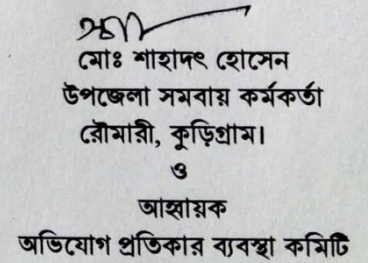 মোঃ শাহাদৎ হোসেন
উপজেলা সমবায় কর্মকর্তা
রৌমারী, কুড়িগ্রাম।
ও
আহ্বায়ক
অভিযোগ প্রতিকার ব্যবস্থা কমিটি